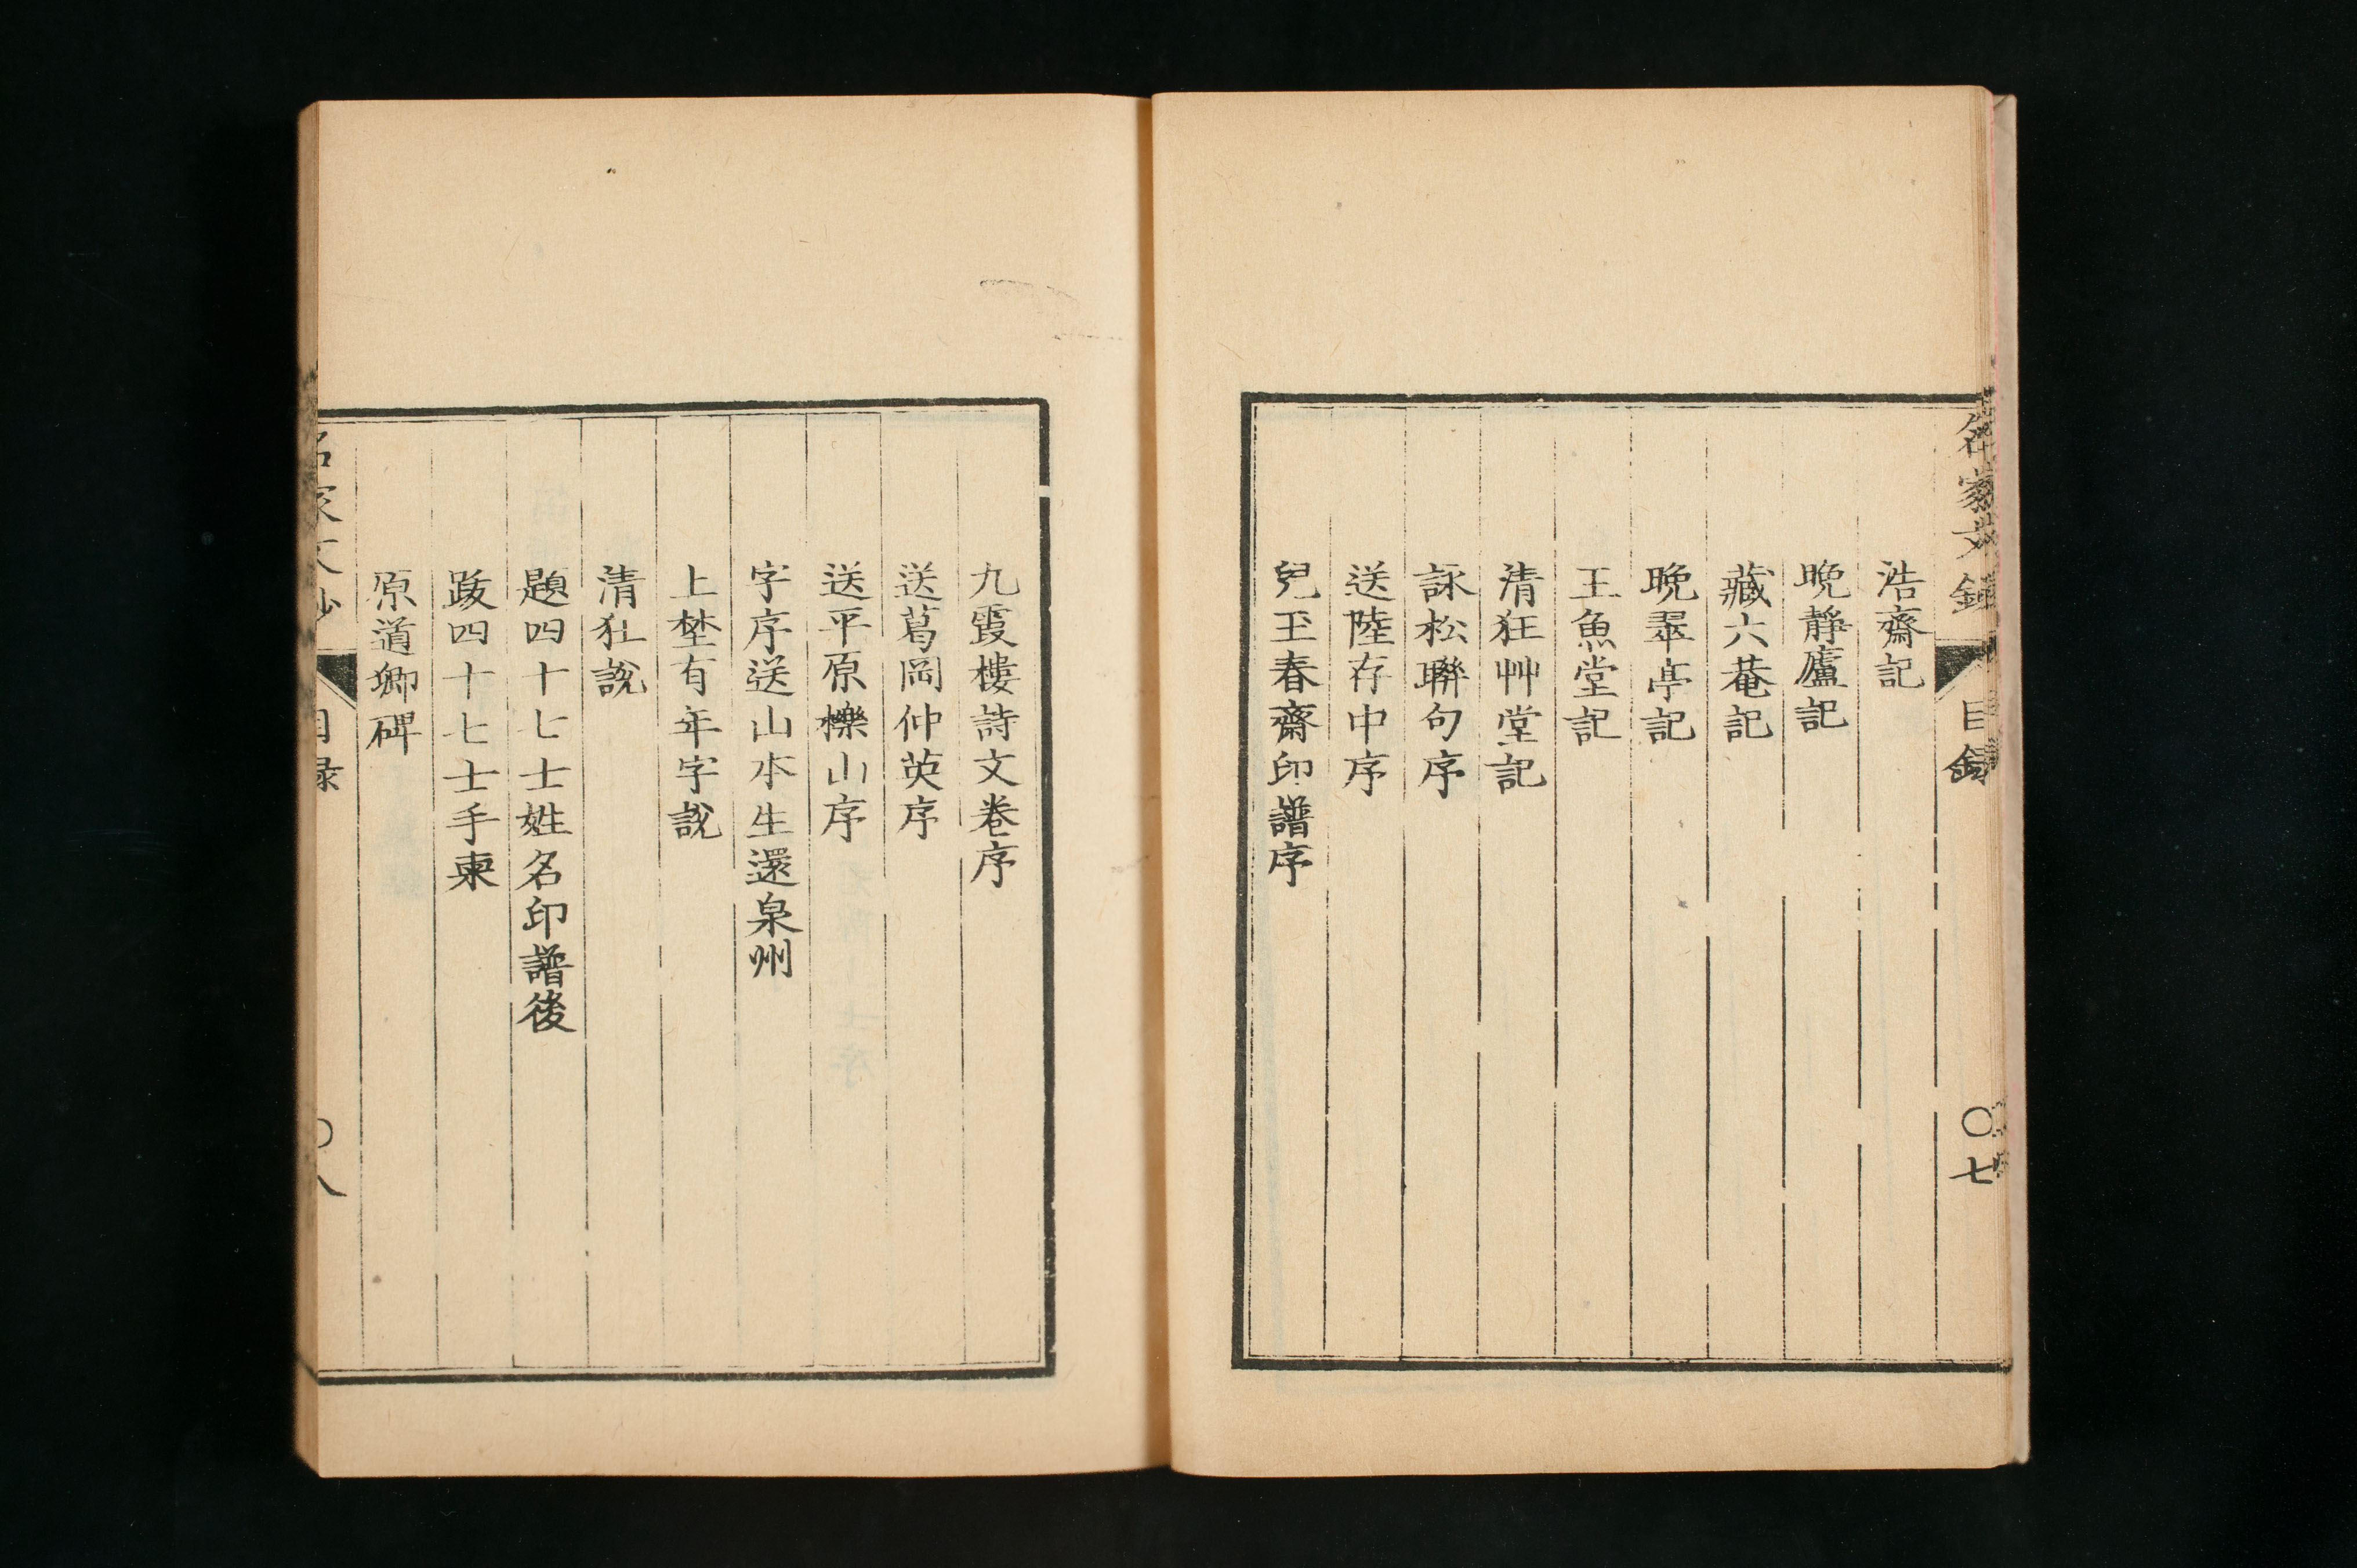 名家文鈔 目録 〇七
浩齋記
晚靜廬記
藏六菴記
晚翠亭記
王魚堂記
清狂艸堂記
詠松聯句序
送陸存中序
兒玉春齋印譜序
九霞樓詩文卷序
送葛岡仲英序
送平原櫟山序
字序送山本生還泉州
上埜有年字說
清狂說
題四十七士姓名印譜後
跋四十七士手柬
原道卿碑
名家文鈔 目録 〇八